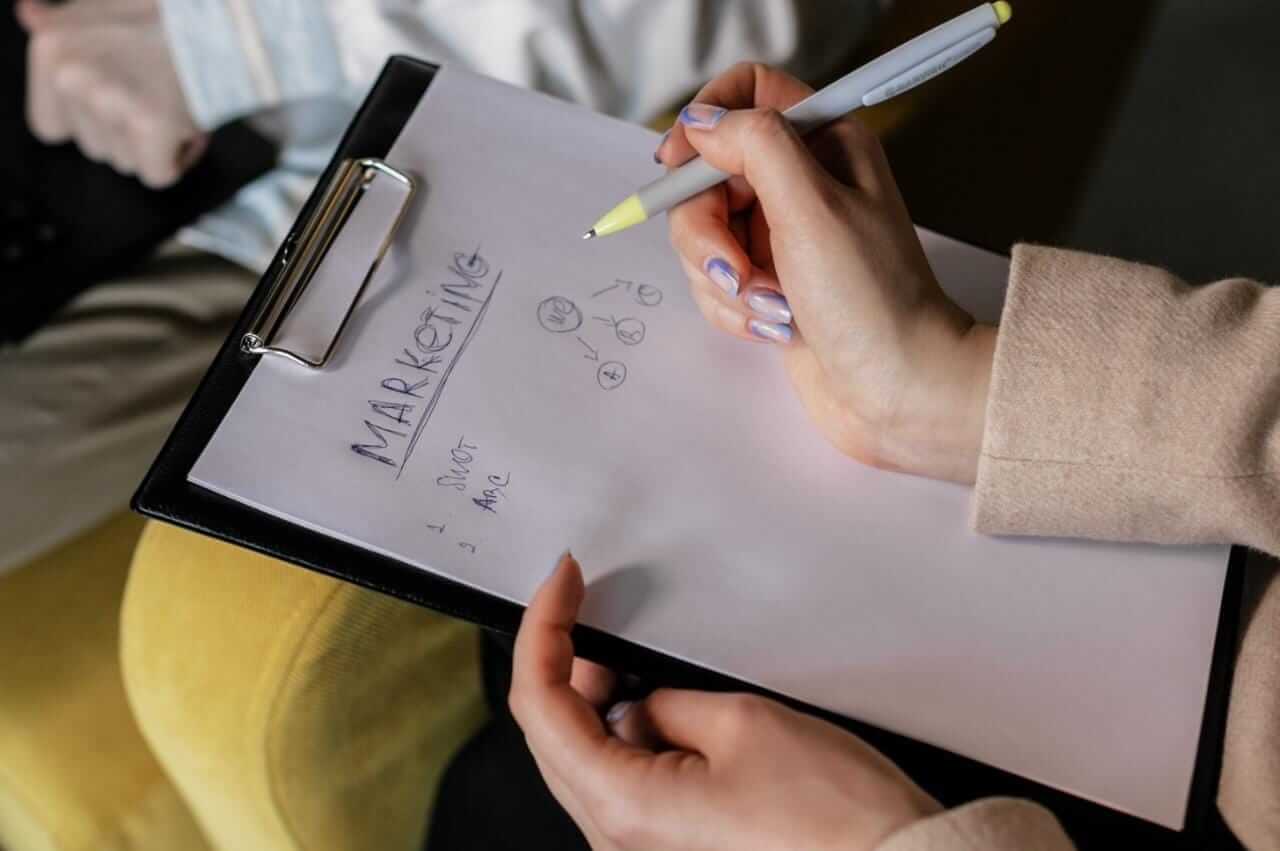 MARKETING
1. SWOT
2 ABC
C
B
A